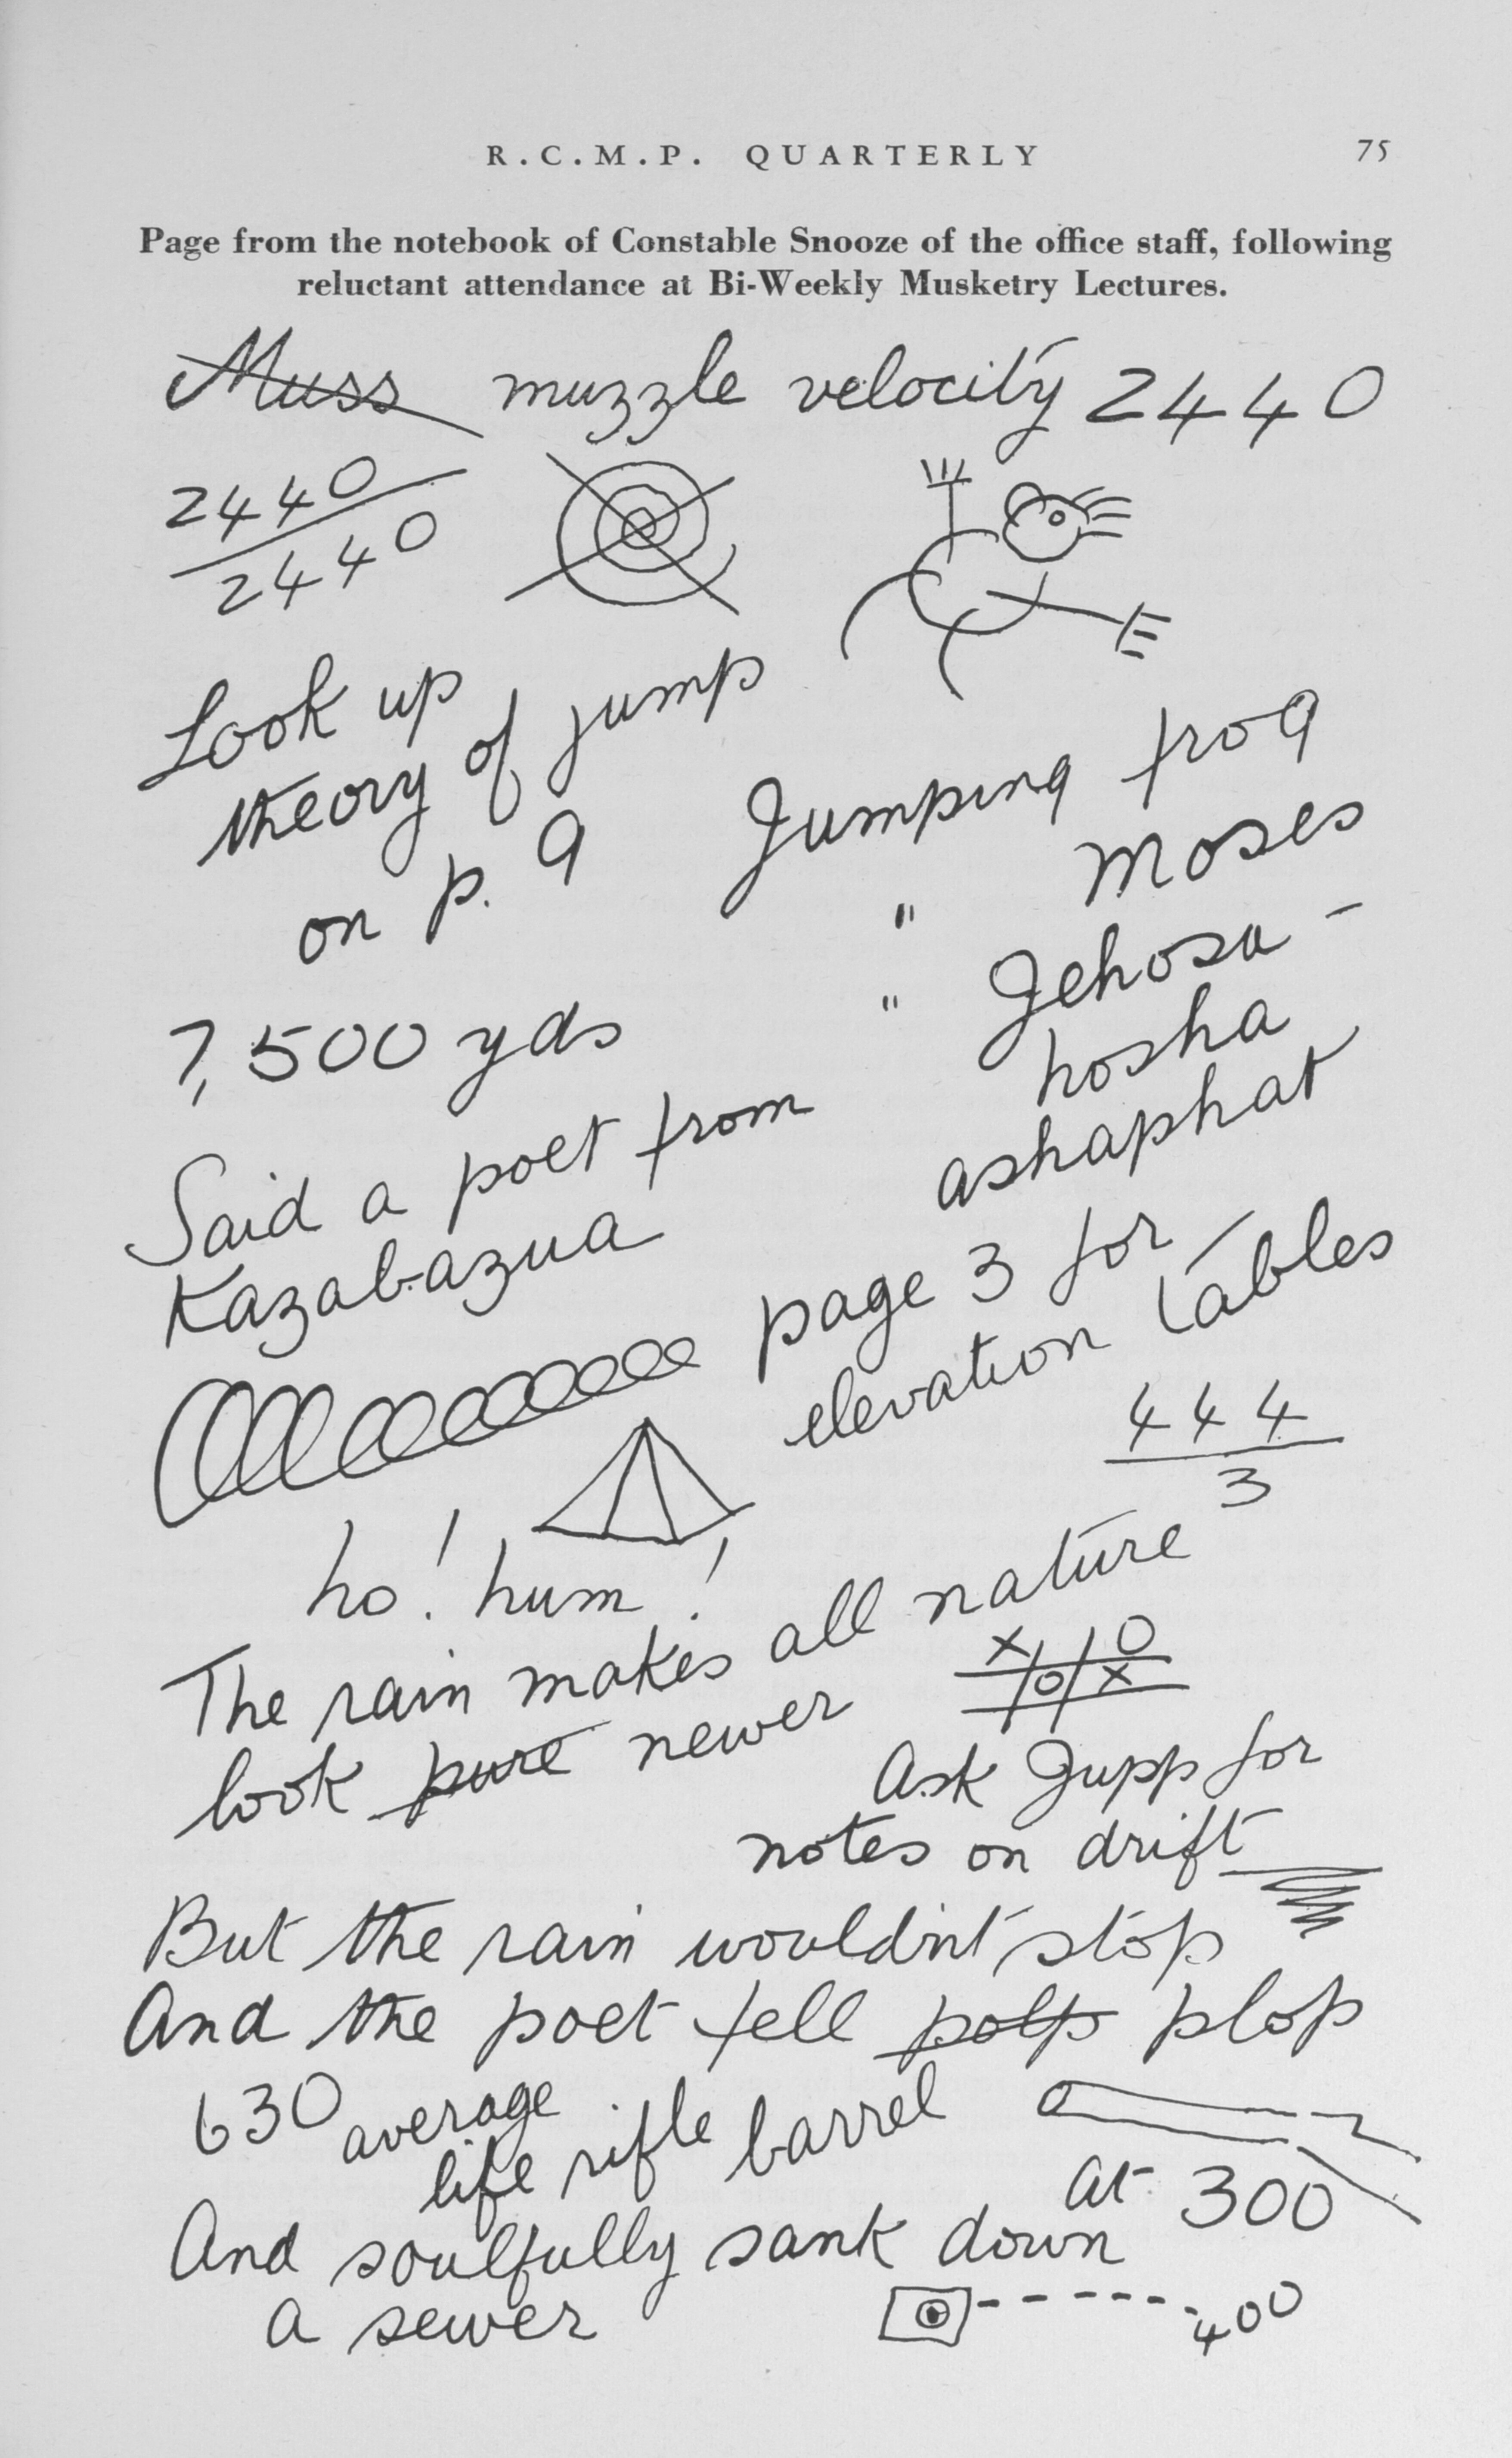 R.C.M.P. QUARTERLY 75
Page from the notebook of Constable Snooze of the office staff, following
reluctant attendance at Bi-Weekly Musketry Lectures.
Muss muzzle velocity 2440
2440
2440
Look up
theory of jump
on p. 9
Jumping frog
" Moses
" Jehosa-
hosha
ashaphat
7,500 yds
Said a poet from
Kazabazua
page 3 for
elevation tables
444
3
ho! hum!
The rain makes all nature
look pure newer
x o
o x
Ask Jupp for
notes on drift
But the rain wouldn't stop
And the poet fell polp plop
630 average
life rifle barrel
at 300
And soulfully sank down
a sewer
400